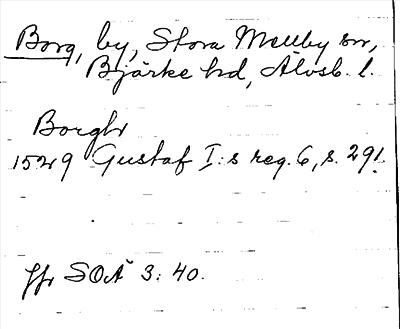 Borg, by, Stora Mellby sn,
Bjärke hd, Älvsb. l.
Borgh
1529 Gustaf I:s reg. 6, s. 291.
Jfr SOÄ 3:40.